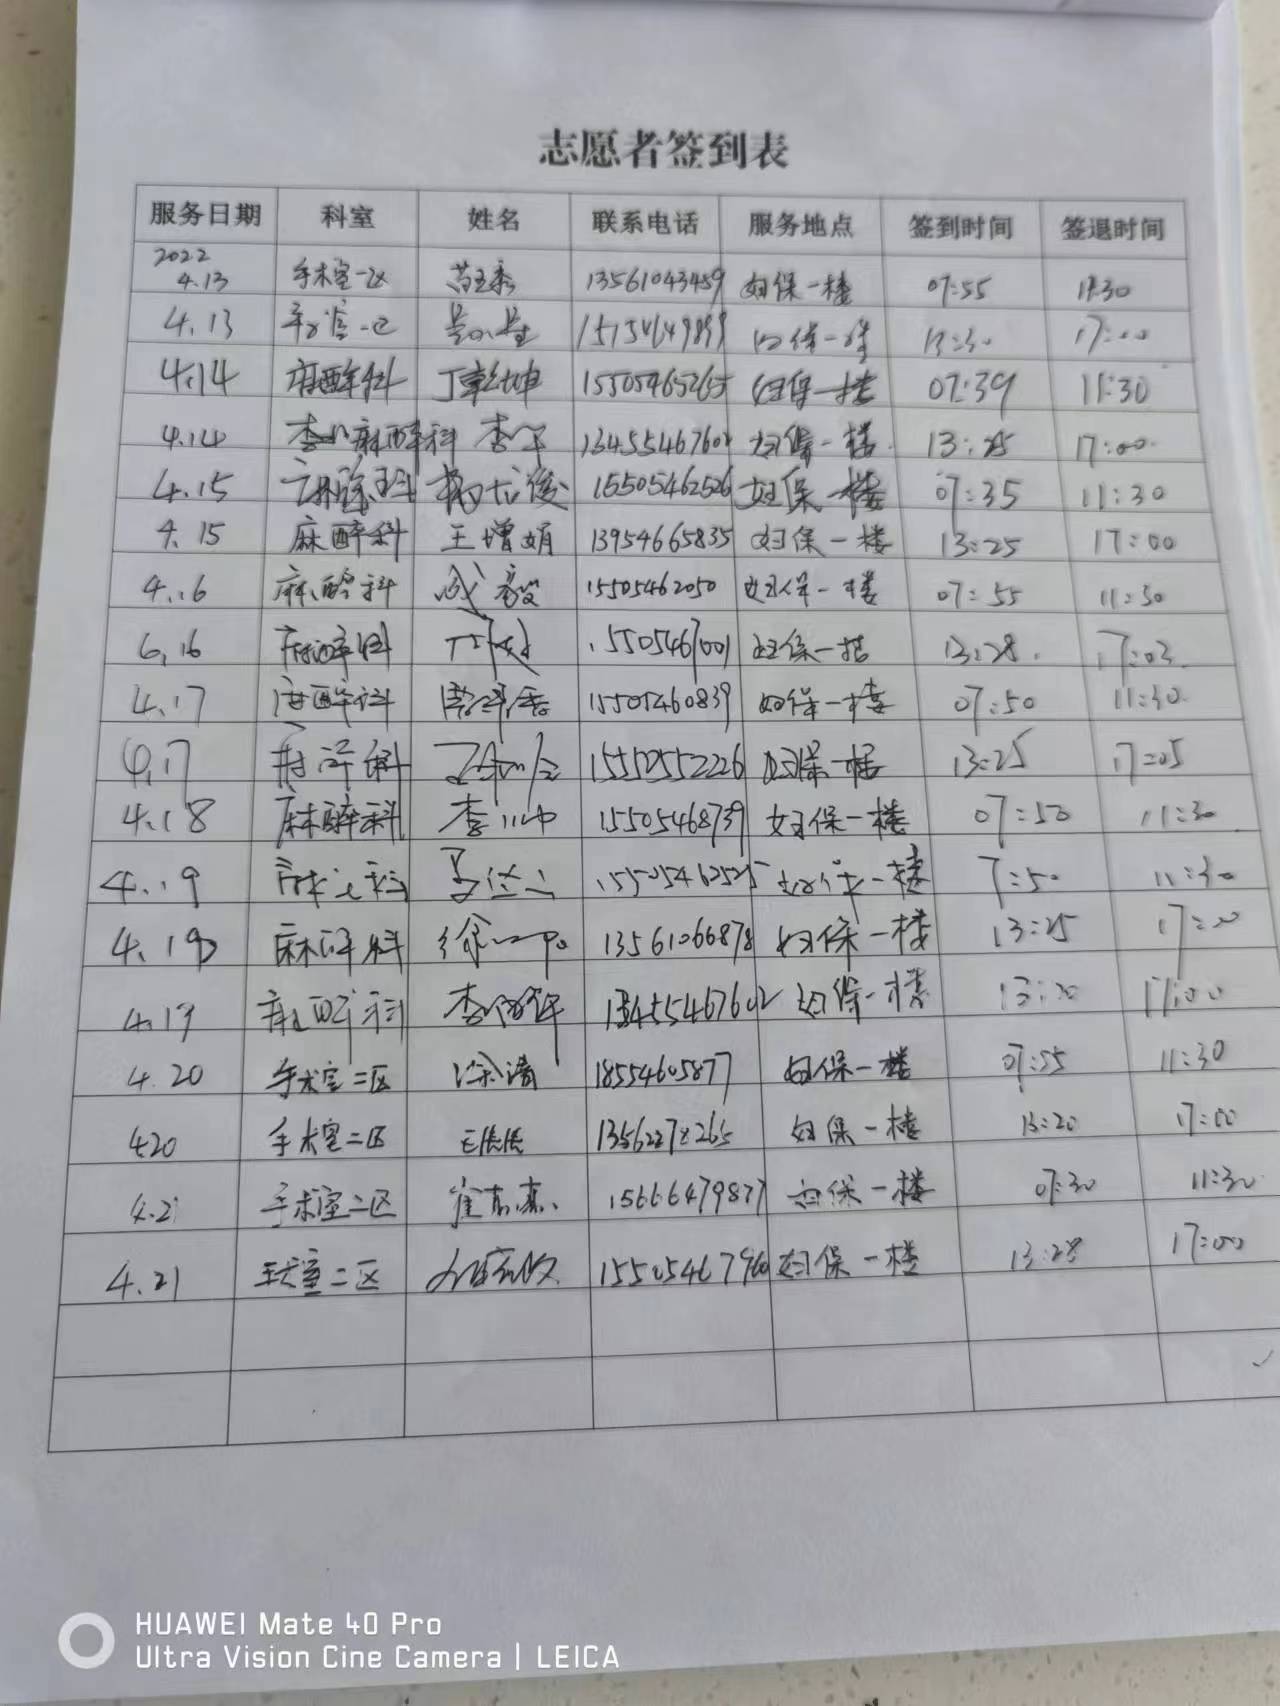 志愿者签到表
服务日期 科室 姓名 联系电话 服务地点 签到时间 签退时间
2022
4.13 手术室一区 13561043459 妇保一楼 07:55 11:30
4.13 妇保一楼 13:30 17:00
4.14 麻醉科 丁乾坤 15505465265 妇保一楼 07:39 11:30
4.14 麻醉科 李 13455467602 妇保一楼 13:25 17:00
4.15 麻醉科 15505462526 妇保一楼 07:35 11:30
4.15 麻醉科 王增娟 13954665835 妇保一楼 13:25 17:00
4.16 麻醉科 成毅 15505462050 妇保一楼 07:55 11:30
6.16 麻醉科 15505467001 妇保一楼 13:28 17:03
4.17 麻醉科 15505460839 妇保一楼 07:50 11:30
4.17 麻醉科 15550552226 妇保一楼 13:25 17:05
4.18 麻醉科 李 15505468739 妇保一楼 07:50 11:30
4.19 麻醉科 妇保一楼 7:50 11:30
4.19 麻醉科 徐 13561066878 妇保一楼 13:25 17:00
4.19 麻醉科 李 13455467602 妇保一楼 13:20 17:00
4.20 手术室二区 徐清 18554605877 妇保一楼 07:55 11:30
4.20 手术室二区 13562278265 妇保一楼 13:20 17:00
4.21 手术室二区 崔 15666479877 妇保一楼 07:30 11:30
4.21 手术室二区 妇保一楼 13:28 17:00
HUAWEI Mate 40 Pro
Ultra Vision Cine Camera | LEICA